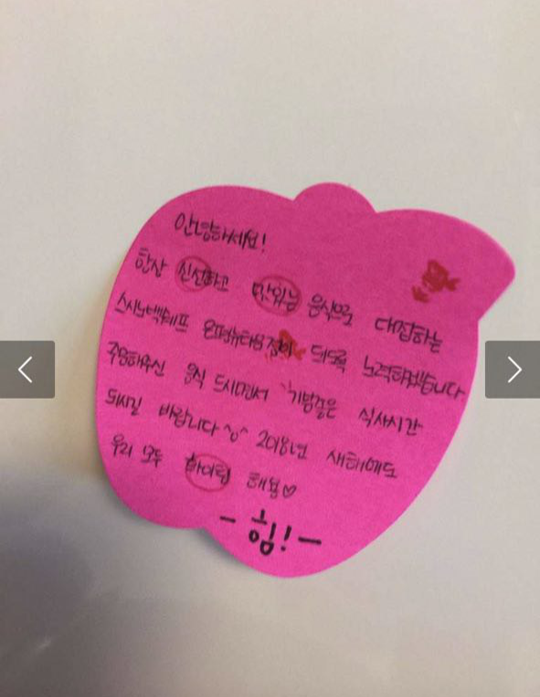 안녕하세요!
항상 신선하고 맛있는 음식으로 대접하는
되도록 노력하겠습니다
주문하신 음식 드시면서 기분좋은 식사시간
되시길 바랍니다 ^o^ 2018년 새해에도
우리 모두 화이팅 해요♡